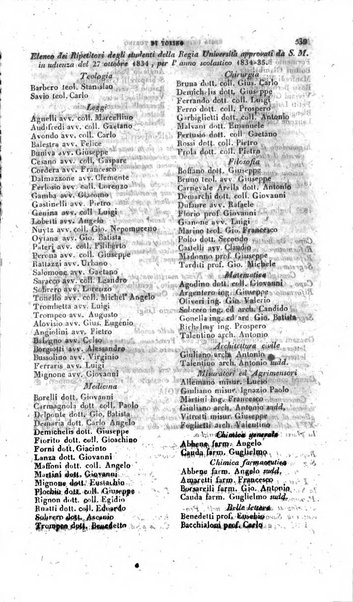 DI TORINO 539
Elenco dei Ripetitori degli studenti della Regia Università approvati da S. M.
in udienza del 27 ottobre 1834, per l' anno scolastico 1834-35.
Teologia
Barbero teol. Stanislao
Savio teol. Carlo
Leggi
Agnelli avv. coll. Marcellino
Audifredi avv. coll. Gaetano
Avondo avv. coll. Carlo
Balestra avv. Felice
Buniva avv. Giuseppe
Cesano avv. coll. Gaspare
Cordera avv. Francesco
Dalmazzone avv. Clemente
Ferlosio avv. coll. Lorenzo
Gamba avv. Giacomo
Gastaldi avv. coll. Lorenzo
Genina avv. coll. Luigi
Loberti avv. Angelo
Nuytz avv. coll. Gio. Nepomuceno
Oytana avv. Gio. Batista
Pateri avv. coll. Filiberto
Perona avv. coll. Giuseppe
Rattazzi avv. Urbano
Salomone avv. Gaetano
Saracco avv. coll. Leandro
Solferini avv. Giuseppe
Tonello avv. coll. Michel' Angelo
Trombetta avv. Luigi
Trompeo avv. Augusto
Aloviso avv. Gius. Eugenio
Anfiglio avv. Prospero
Belgno avv. Celso
Borgotti avv. Alessandro
Bussolino avv. Virginio
Ferraris avv. Luigi
Medicina
Borelli dott. Giovanni
Carmagnola dott. coll. Paolo
Delponte dott. Gio. Batista
Demaria dott. Carlo
Demichelis dott. Giuseppe
Fiorito dott. coll. Gioachino
Forni dott. Giacinto
Lanza dott. Giovanni
Maffoni dott. coll. Angelo
Martini dott. Giovanni
Mignone dott. Eustachio
Plochiù dott. coll. Giuseppe
Rignon dott. coll. Felice
Sobrero dott. Ascanio
Trompeo dott. Benedetto
Chirurgia
Bruna dott. coll. Gius. Ant.
Demichelis dott. Giuseppe
Ferrando dott. coll. Carlo
Garbiglietti dott. coll. Antonio
Malvani dott. Emanuele
Pertusio dott. coll. Gaetano
Riberi dott. Antonio
Prola dott. coll. Antonio
Filosofia
Boffano dott. Giuseppe
Bruna dott. Giuseppe
Carnevale Arella dott. Antonio
Demarchi dott. Giovanni
Dulfour arch. Rafaele
Florio prof. Giovanni
Marino teol. Gio. Francesco
Polto dott. Secondo
Cavalli arch. Claudio
Madonno prof. Giuseppe
Tarditi prof. Michele
Matematica
Agodino dott. coll. Giovanni
Argentero ing. Giuseppe
Olivieri ing. Gio. Valerio
Sobrero ing. ed arch. Candido
Gonella ing. ed arch. Gio. Batista
Richelmy ing. Prospero
Talentino arch. Antonio
Architettura civile
Giuliano arch. Antonio
Talentino arch. Antonio sudd.
Misuratori ed Agrimensori
Allemano misur. Lucio
Giuliano misur. Ignazio Paolo
Giuliano arch. Antonio sudd.
Vitrotti misur. Giuseppe
Foglietti misur. Antonio
Chimica generale
Abbene farm. Angelo
Canda farm. Guglielmo
Chimica farmaceutica
Abbene farm. Angelo sudd.
Amaretti farm. Francesco
Borsarelli farm. Gio. Antonio
Canda farm. Guglielmo sudd.
Belle lettere
Benedetti prof. Eusebio
Bacchialoni prof. Carlo